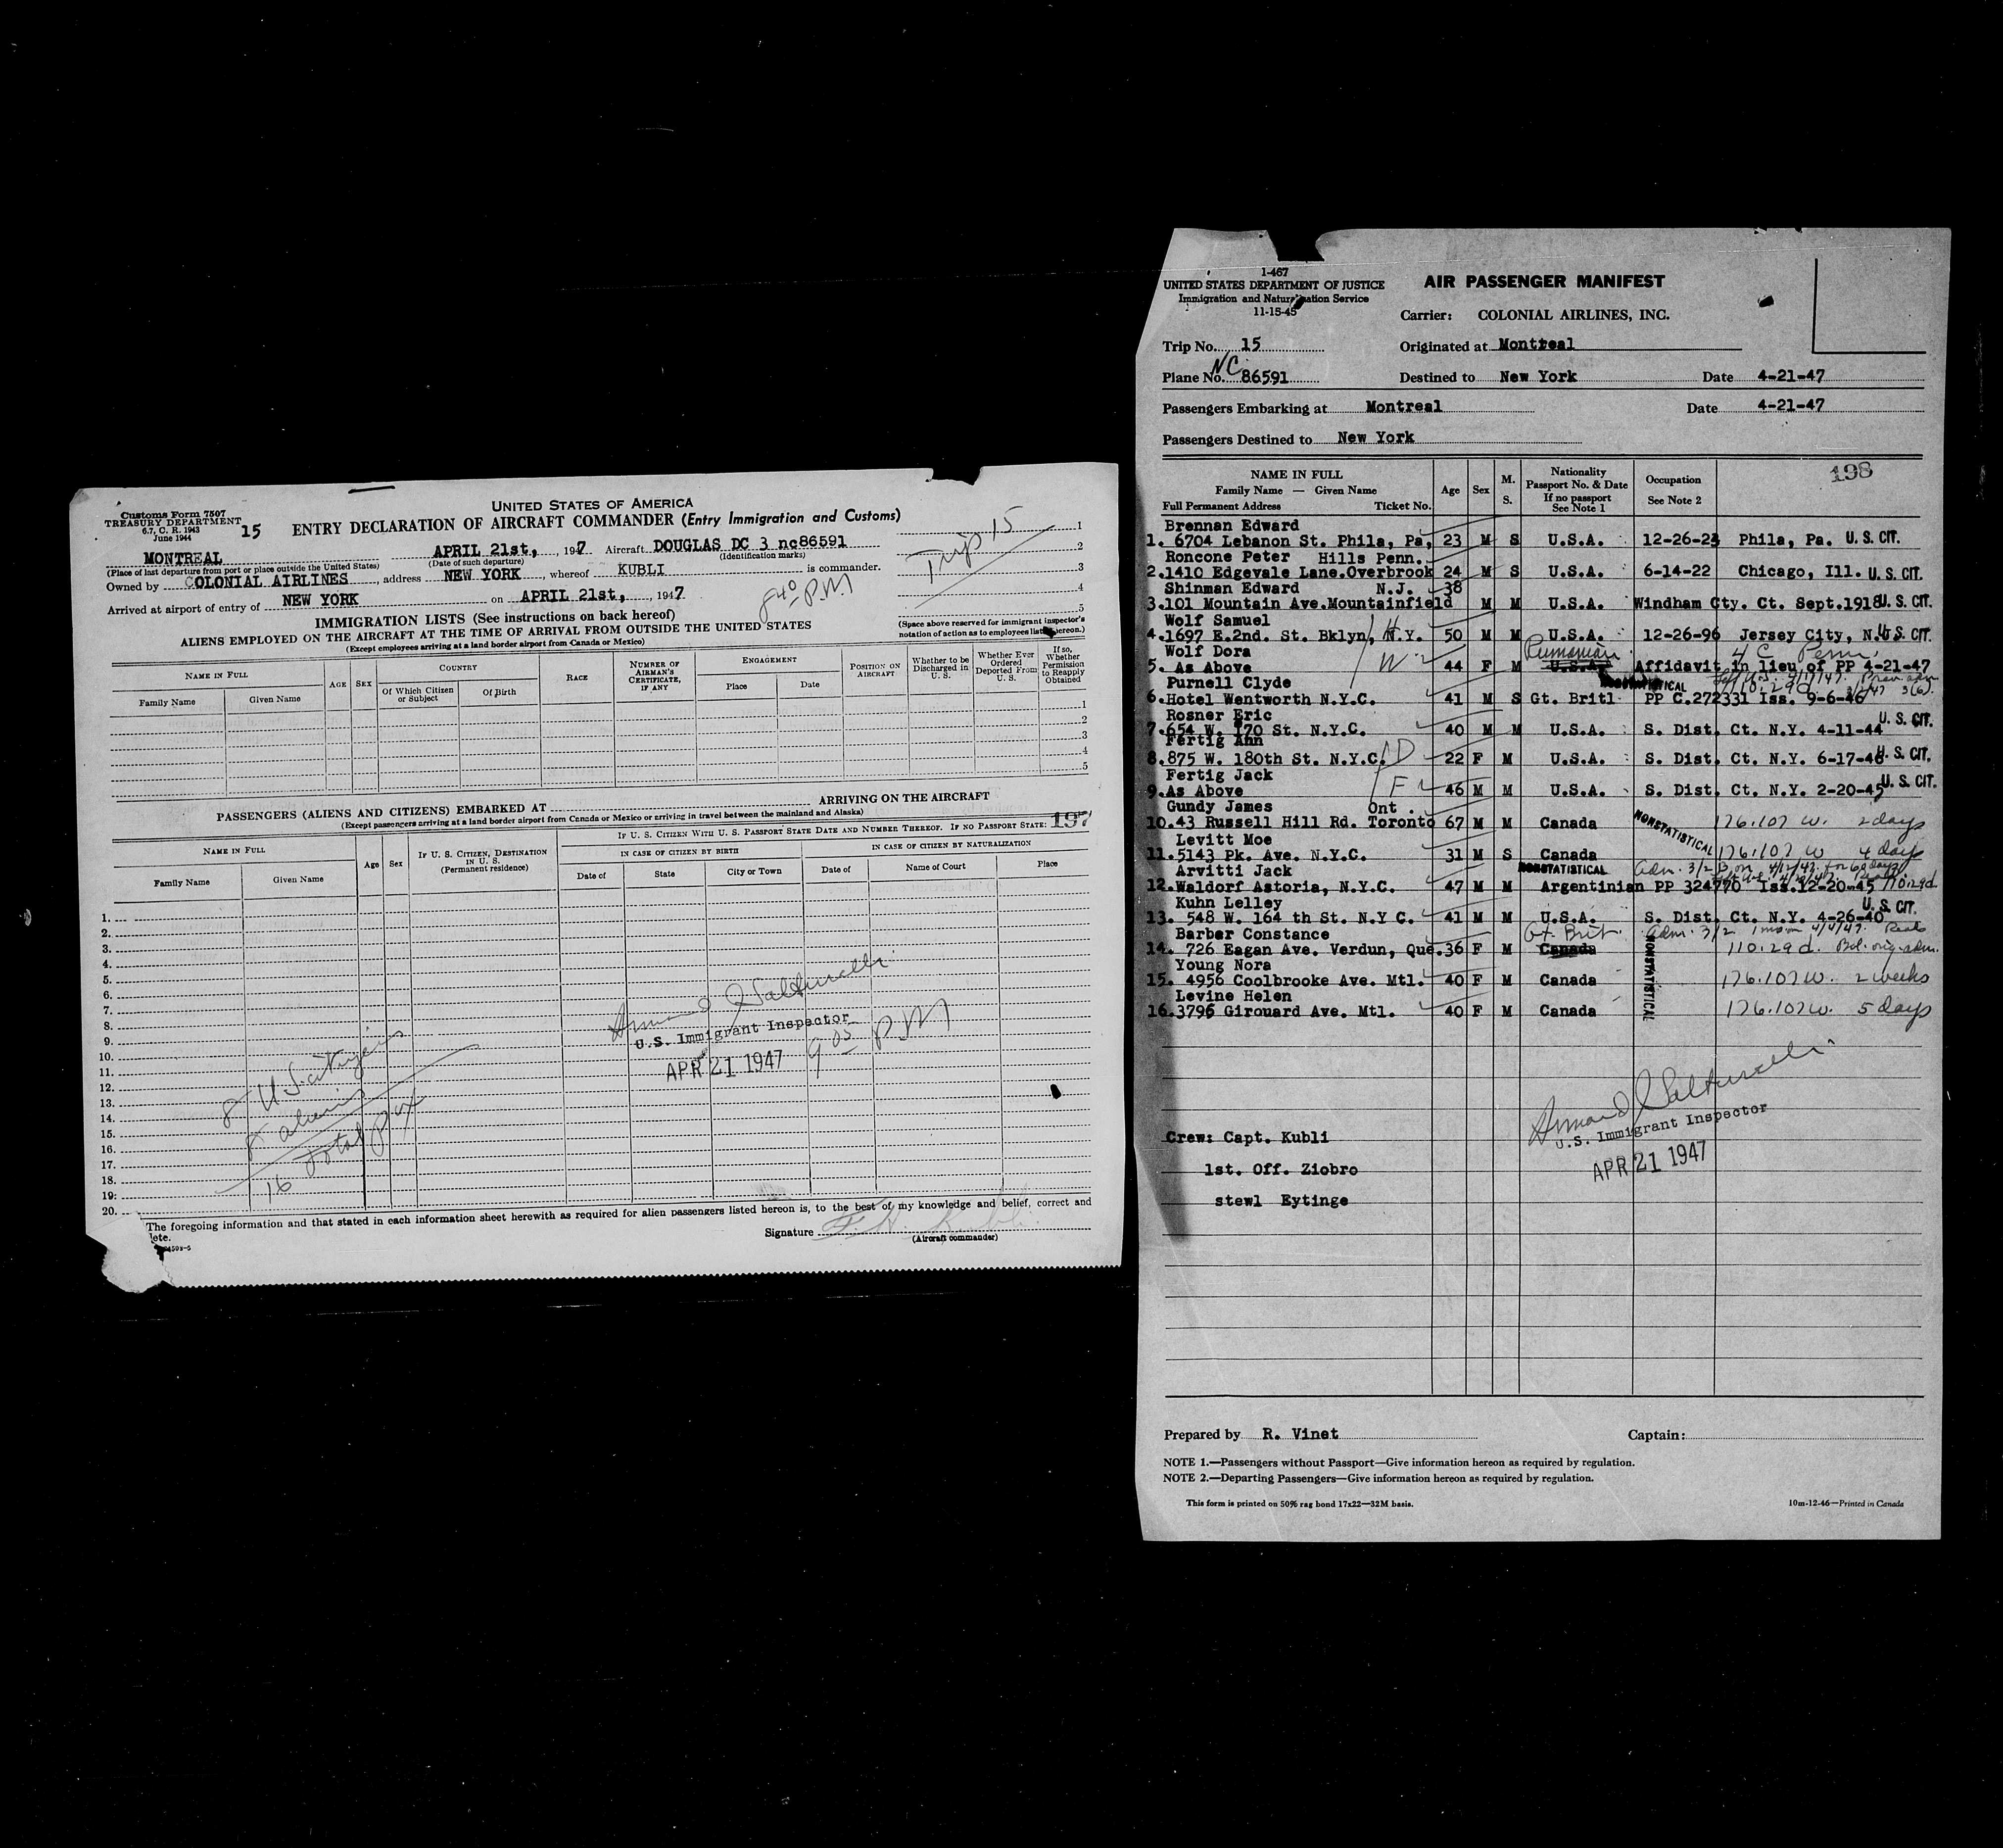 Customs Form 7507
TREASURY DEPARTMENT
6.7, C. R. 1943
June 1944
15
UNITED STATES OF AMERICA
ENTRY DECLARATION OF AIRCRAFT COMMANDER (Entry Immigration and Customs)
MONTREAL APRIL 21st, , 1947 Aircraft DOUGLAS DC 3 nc86591
(Place of last departure from port or place outside the United States) (Date of such departure) (Identification marks)
Owned by COLONIAL AIRLINES , address NEW YORK , whereof KUBLI is commander.
Arrived at airport of entry of NEW YORK on APRIL 21st, , 1947
840 P.M
Trip 15
1
2
3
4
5
(Space above reserved for immigrant inspector's notation of action as to employees listed hereon.)
IMMIGRATION LISTS (See instructions on back hereof)
ALIENS EMPLOYED ON THE AIRCRAFT AT THE TIME OF ARRIVAL FROM OUTSIDE THE UNITED STATES
(Except employees arriving at a land border airport from Canada or Mexico)
NAME IN FULL
Family Name Given Name
AGE SEX
COUNTRY
Of Which Citizen or Subject Of Birth
RACE
NUMBER OF AIRMAN'S CERTIFICATE, IF ANY
ENGAGEMENT
Place Date
POSITION ON AIRCRAFT
Whether to be Discharged in U. S.
Whether Ever Ordered Deported From U. S.
If so, Whether Permission to Reapply Obtained
1
2
3
4
5
PASSENGERS (ALIENS AND CITIZENS) EMBARKED AT ARRIVING ON THE AIRCRAFT
(Except passengers arriving at a land border airport from Canada or Mexico or arriving in travel between the mainland and Alaska)
197
NAME IN FULL
Family Name Given Name
Age Sex
IF U. S. CITIZEN, DESTINATION IN U. S. (Permanent residence)
IF U. S. CITIZEN WITH U. S. PASSPORT STATE DATE AND NUMBER THEREOF. IF NO PASSPORT STATE:
IN CASE OF CITIZEN BY BIRTH IN CASE OF CITIZEN BY NATURALIZATION
Date of State City or Town Date of Name of Court Place
1.
2.
3.
4.
5.
6.
7.
8.
9.
10.
11.
12.
13.
14.
15.
16.
17.
18.
19.
20.
8 U.S. citizens
8 aliens
16 total pax
U.S. Immigrant Inspector
APR 21 1947
9 05 PM
The foregoing information and that stated in each information sheet herewith as required for alien passengers listed hereon is, to the best of my knowledge and belief, correct and
lete.
Signature F. H. Kubli
(Aircraft commander)
1-467
UNITED STATES DEPARTMENT OF JUSTICE
Immigration and Naturalization Service
11-15-45
AIR PASSENGER MANIFEST
Carrier: COLONIAL AIRLINES, INC.
Trip No. 15 Originated at Montreal
Plane No. NC 86591 Destined to New York Date 4-21-47
Passengers Embarking at Montreal Date 4-21-47
Passengers Destined to New York
NAME IN FULL
Family Name — Given Name
Full Permanent Address Ticket No.
Age Sex M. S.
Nationality
Passport No. & Date
If no passport
See Note 1
Occupation
See Note 2
198
Brennan Edward
1. 6704 Lebanon St. Phila, Pa, 23 M S U.S.A. 12-26-23 Phila, Pa. U. S. CIT.
Roncone Peter Hills Penn.
2.1410 Edgevale Lane.Overbrook 24 M S U.S.A. 6-14-22 Chicago, Ill. U. S. CIT.
Shinman Edward N.J. 38
3.101 Mountain Ave.Mountainfield M M U.S.A. Windham Cty. Ct. Sept.1918 U. S. CIT.
Wolf Samuel
4.1697 E.2nd. St. Bklyn, N.Y. 50 M M U.S.A. 12-26-96 Jersey City, N.J. U. S. CIT.
Wolf Dora Rumanian 4 C Perm.
5. As Above 44 F M U.S.A. Affidavit in lieu of PP 4-21-47
Purnell Clyde
6.Hotel Wentworth N.Y.C. 41 M S Gt. Britl PP C.272331 Iss. 9-6-46
Rosner Eric
7.654 W. 170 St. N.Y.C. 40 M M U.S.A. S. Dist. Ct. N.Y. 4-11-44 U. S. CIT.
Fertig Ann
8.875 W. 180th St. N.Y.C. 22 F M U.S.A. S. Dist. Ct. N.Y. 6-17-46 U. S. CIT.
Fertig Jack
9.As Above 46 M M U.S.A. S. Dist. Ct. N.Y. 2-20-45 U. S. CIT.
Gundy James Ont .
10.43 Russell Hill Rd. Toronto 67 M M Canada NONSTATISTICAL 176.107 W. 2 days
Levitt Moe
11.5143 Pk. Ave. N.Y.C. 31 M S Canada 176.107 W 4 days
Arvitti Jack NONSTATISTICAL
12.Waldorf Astoria, N.Y.C. 47 M M Argentinian PP 324770 Iss.12-20-45 110.29d
Kuhn Lelley
13. 548 W. 164 th St. N.Y C. 41 M M U.S.A. S. Dist. Ct. N.Y. 4-26-40 U. S. CIT.
Barber Constance Gt. Brit. adm. 3/2 1 mo on 4/4/47.
14. 726 Eagan Ave. Verdun, Que. 36 F M Canada 110.29 d.
Young Nora
15. 4956 Coolbrooke Ave. Mtl. 40 F M Canada NONSTATISTICAL 176.107 W. 2 weeks
Levine Helen
16.3796 Girouard Ave. Mtl. 40 F M Canada 176.107 W. 5 days
U.S. Immigrant Inspector
APR 21 1947
Crew: Capt. Kubli
1st. Off. Ziobro
stewl Eytinge
Prepared by R. Vinet Captain:
NOTE 1.—Passengers without Passport—Give information hereon as required by regulation.
NOTE 2.—Departing Passengers—Give information hereon as required by regulation.
This form is printed on 50% rag bond 17x22—32M basis. 10m-12-46—Printed in Canada